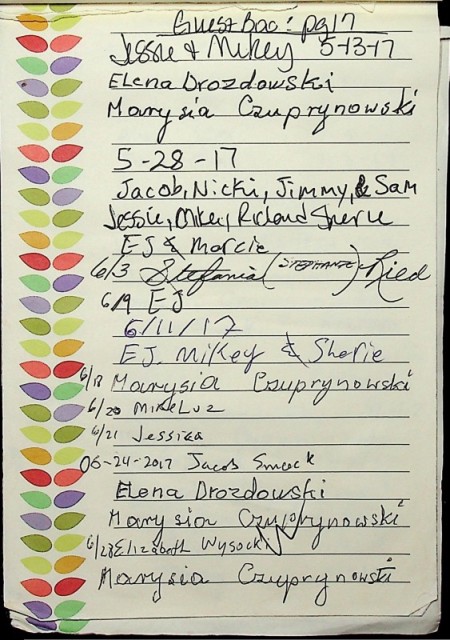 Guest Boo: pg 17
Jessie & Mikey 5-13-17
Elena Drozdowski
Marysia Czuprynowski
5-28-17
Jacob, Nicki, Jimmy, & Sam
Jessie, Mikey, Richard Sherie
EJ & Marcie
6/3 Stefania (STEPHANIE) Ried
6/9 EJ
6/11/17
EJ. Mikey & Sherie
6/18 Marysia Czuprynowski
6/20 Mike Luz
6/21 Jessica
06-24-2017 Jacob
Elena Drozdowski
Marysia Czuprynowski
6/28 Elizabeth Wysocki
Marysia Czuprynowski